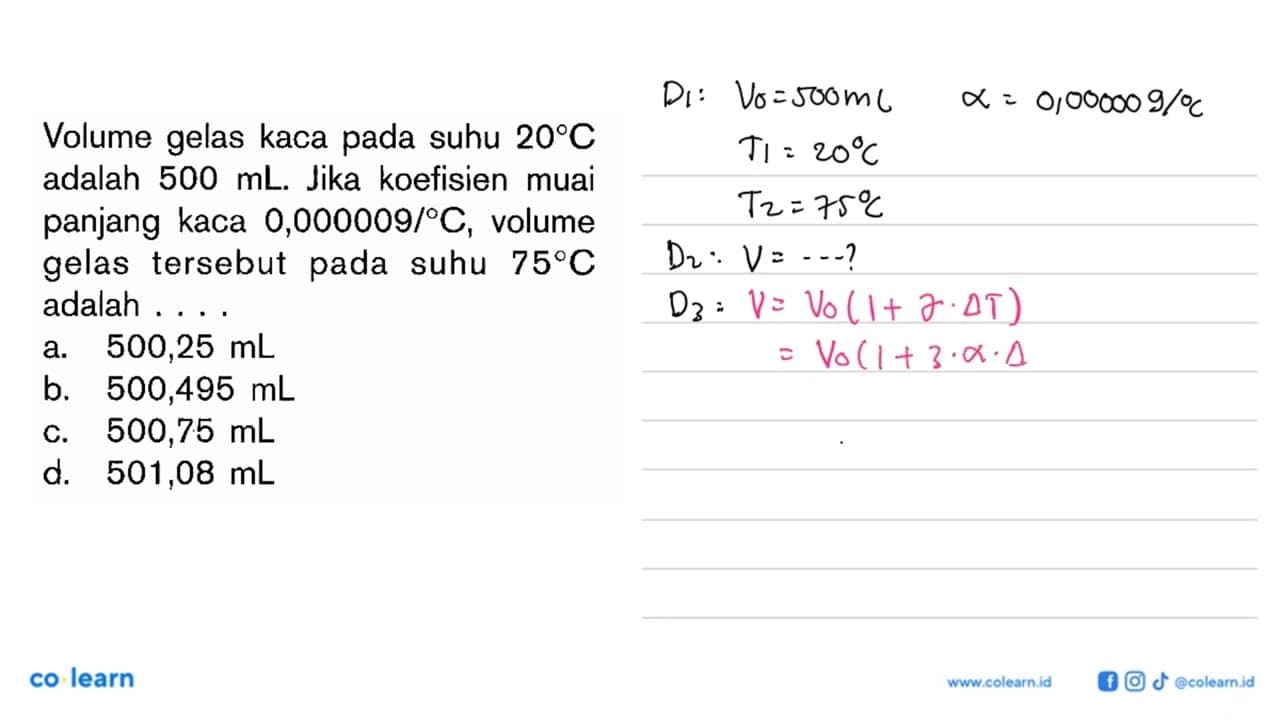 Volume gelas kaca pada suhu 20°C
adalah 500 mL. Jika koefisien muai
panjang kaca 0,000009/°C, volume
gelas tersebut pada suhu 75°C
adalah . . . .
a. 500,25 mL
b. 500,495 mL
c. 500,75 mL
d. 501,08 mL
D1: V0 = 500 mL α = 0,000009/°C
T1 = 20°C
T2 = 75°C
D2: V = ---?
D3: V = V0 (1 + γ · ΔT)
= V0 (1 + 3 · α · Δ
co learn
www.colearn.id @colearn.id